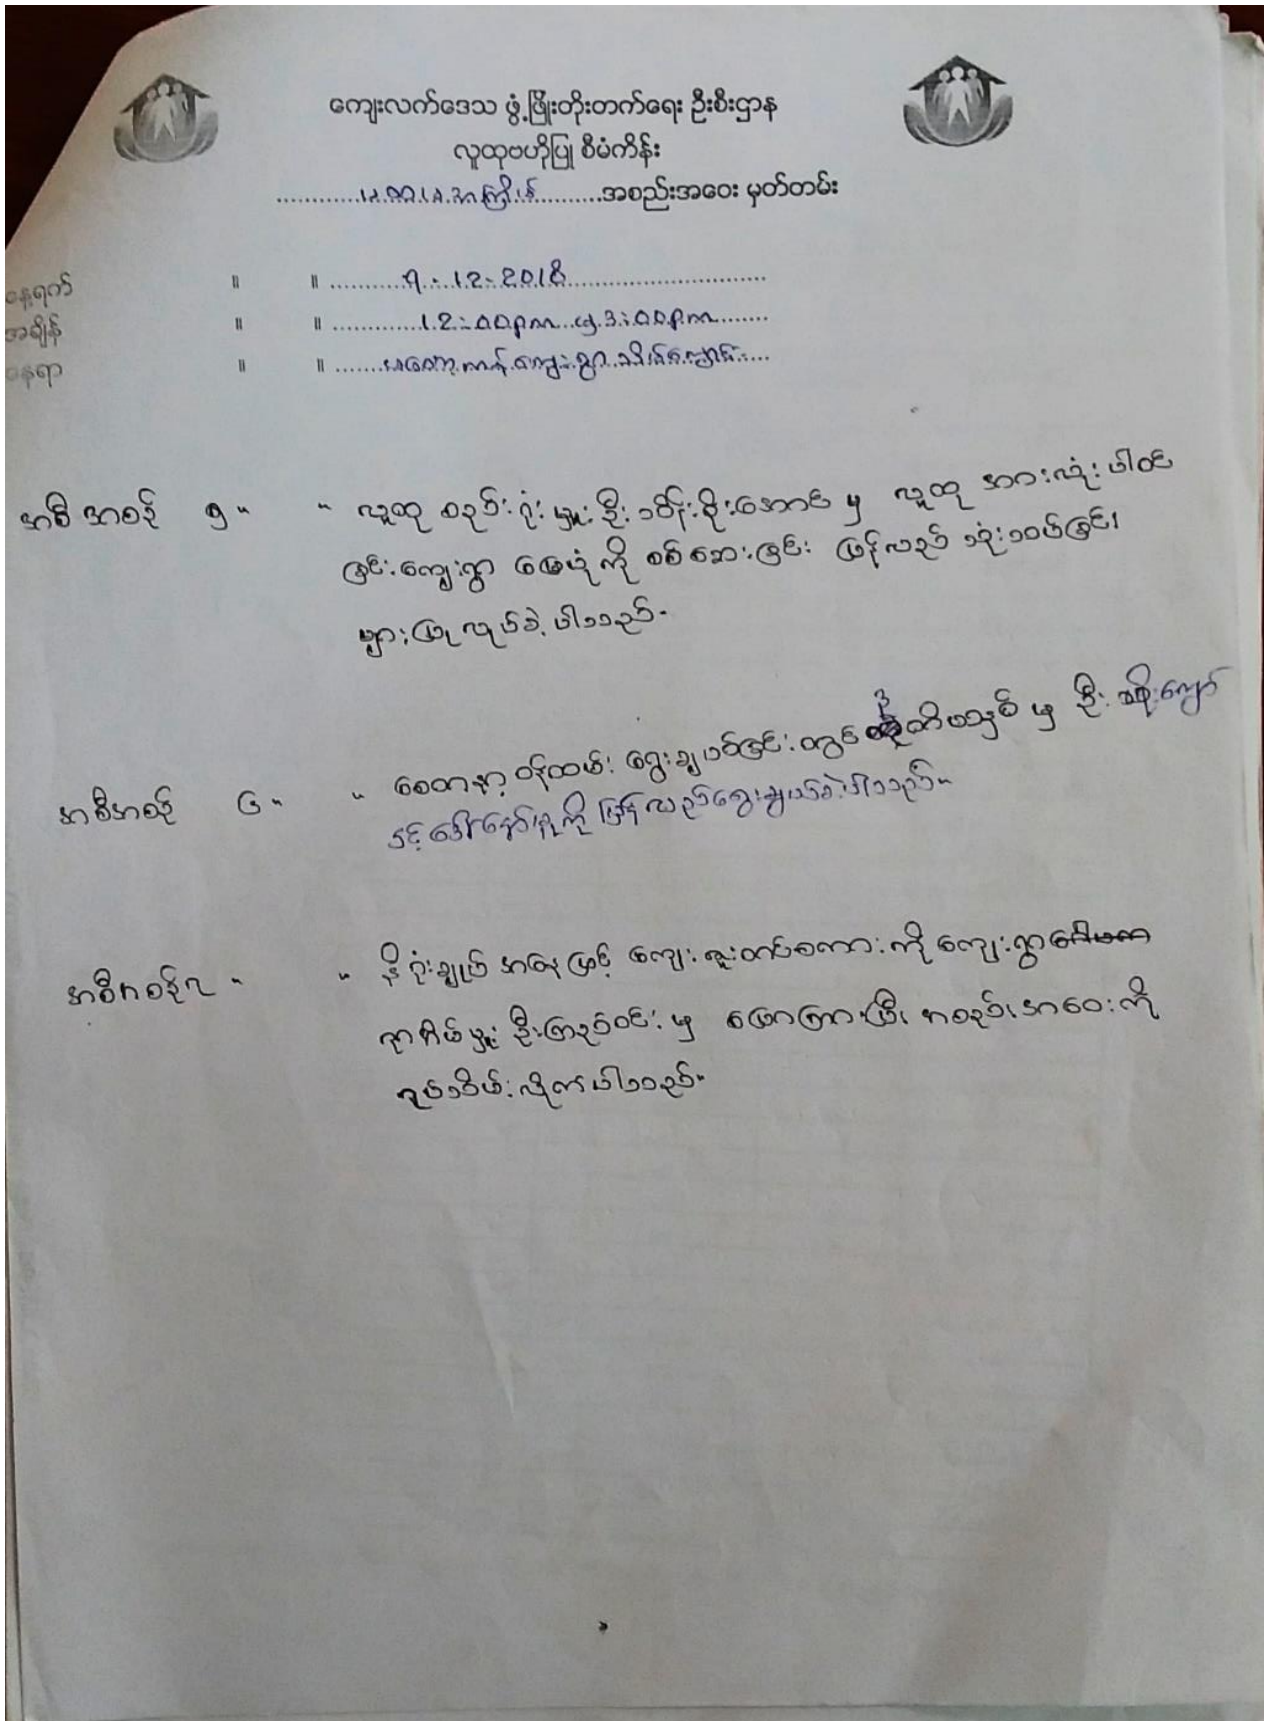 ကျေးလက်ဒေသ ဖွံ့ဖြိုးတိုးတက်ရေး ဦးစီးဌာန
လူထုဗဟိုပြု စီမံကိန်း
အကြိမ်...........အစည်းအဝေး မှတ်တမ်း
နေ့ရက် ॥ ॥ ...........၇.-.12-.2018..............................
အချိန် ॥ ॥ .............12:00pm မှ 3:00pm........
နေရာ ॥ ॥ ကျေးရွာ
အစီအစဉ် ၅။ ။ လူထု စည်းရုံးမှူး ဦးသိန်းစိုးအောင် မှ လူထု အားလုံး ပါဝင်
ခြင်း ကျေးရွာ မြေပုံကို စစ်ဆေးခြင်း ပြန်လည် သုံးသပ်ခြင်း
များ ပြုလုပ်ခဲ့ပါသည်။
အစီအစဉ် ၆။ ။ စေတနာ့ဝန်ထမ်း ရွေးချယ်ခြင်းတွင် မှ ဦး
နှင့် ကို ပြန်လည်ရွေးချယ်ခဲ့ပါသည်။
အစီအစဉ် ၇။ ။ နိဂုံးချုပ် အနေဖြင့် ကျေးဇူးတင်စကားကို ကျေးရွာ
ရာအိမ်မှူး ဦး မှ ပြောကြားပြီး အစည်းအဝေးကို
ရုပ်သိမ်းလိုက်ပါသည်။